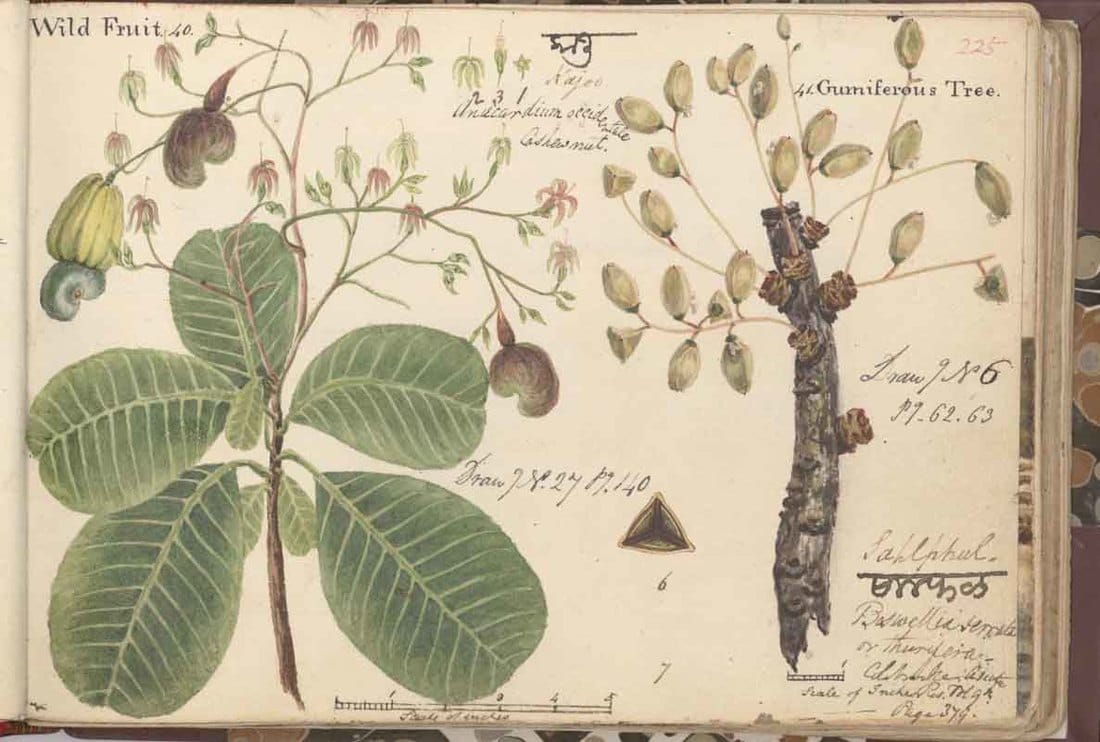 Wild Fruit. 40.
Kajoo
2 3 1
Anacardium occidentale
Cashew nut.
225
41. Gumiferous Tree.
Draw g No 6
Pg. 62. 63
Draw g No. 27 Pg. 140
6
7
Sahlphul.
Boswellia serrata
or thurifera
Scale of Inches
Page 379.
1 4 5
Scale of inches